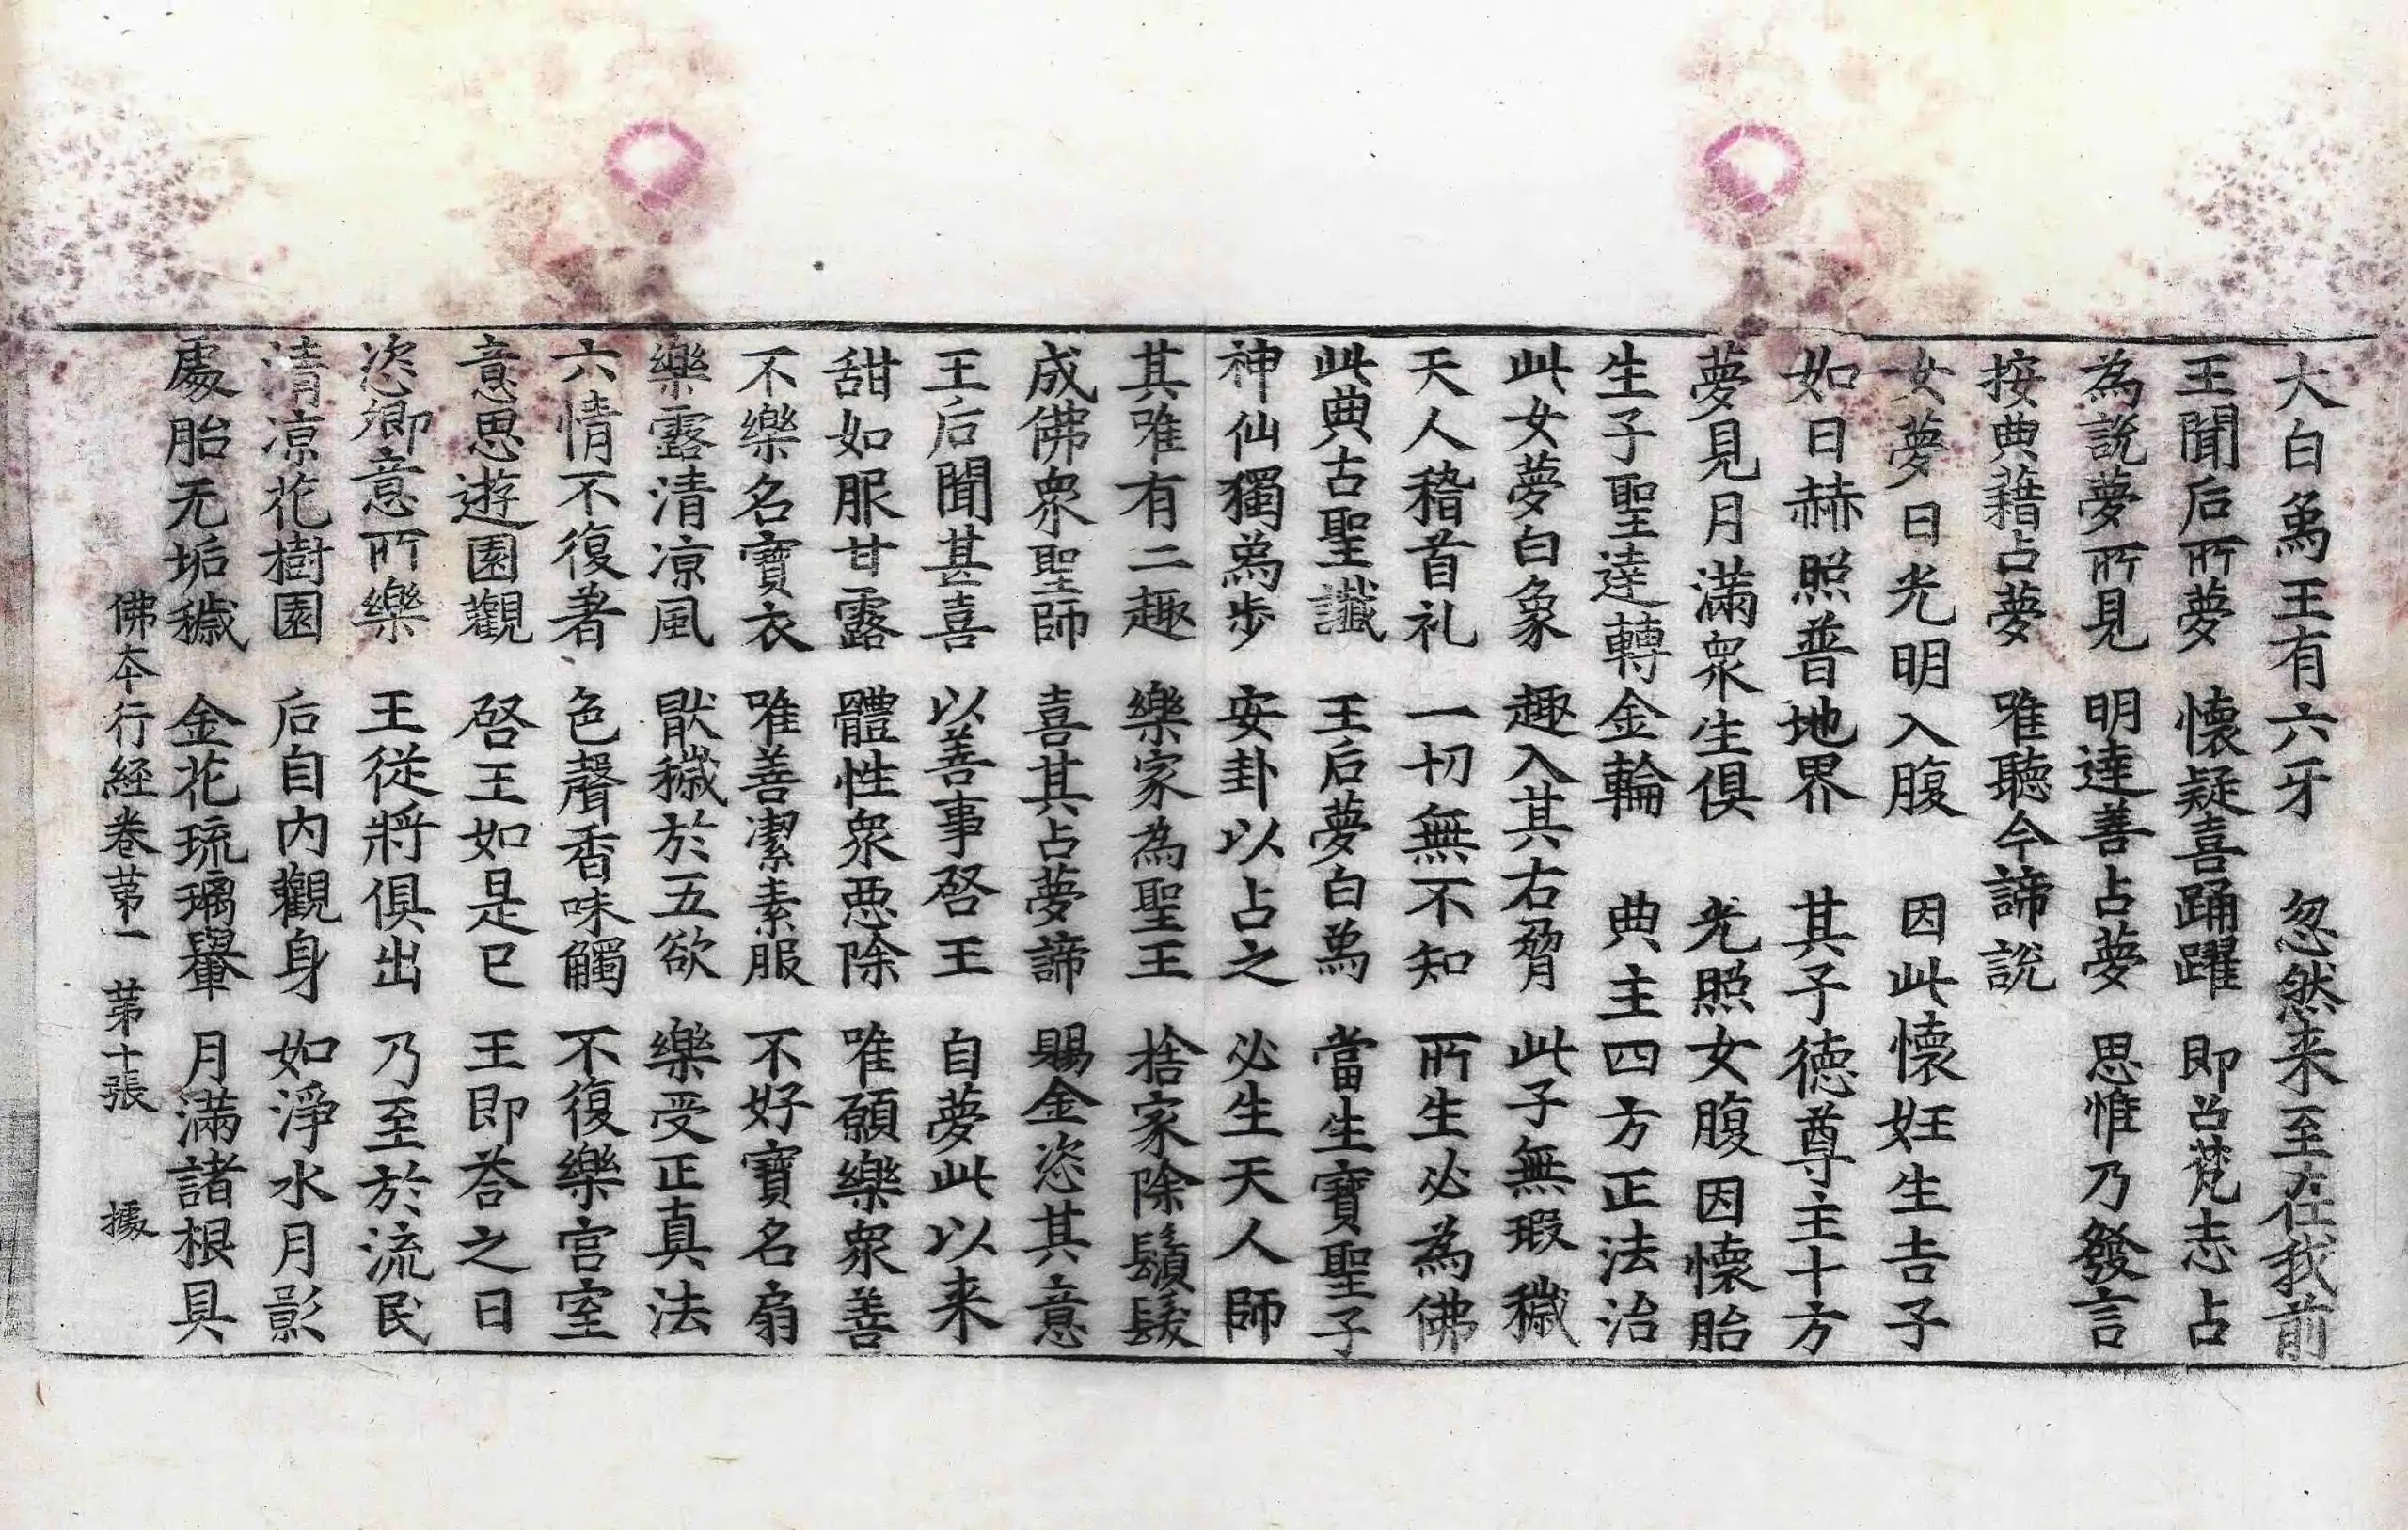 大白爲王有六牙　忽然来至在我前
王聞后所夢　懷疑喜踊躍　即召梵志占
為說夢所見　明達善占夢　思惟乃發言
按典藉占夢　唯聽今諦說
女夢日光明入腹　因此懷妊生吉子
如日赫照普地界　其子德尊主十方
夢見月滿衆生俱　光照女腹因懷胎
生子聖達轉金輪　典主四方正法治
此女夢白象　趣入其右脅　此子無瑕穢
天人稽首礼　一切無不知　所生必為佛
此典古聖讖　王后夢白爲　當生寶聖子
神仙獨爲步　安卦以占之　必生天人師
其唯有二趣　樂家為聖王　捨家除鬚髮
成佛衆聖師　喜其占夢諦　賜金恣其意
王后聞甚喜　以善事啓王　自夢此以来
甜如服甘露　體性衆惡除　唯願樂衆善
不樂名寶衣　唯善潔素服　不好寶名扇
樂露清凉風　猒穢於五欲　樂受正真法
六情不復著　色聲香味觸　不復樂宫室
意思遊園觀　啓王如是已　王即荅之曰
恣卿意所樂　王從將俱出　乃至於流民
清凉花樹園　后自内觀身　如淨水月影
處胎无垢穢　金花琉璃轝　月滿諸根具
佛本行経卷第一　第十張　據